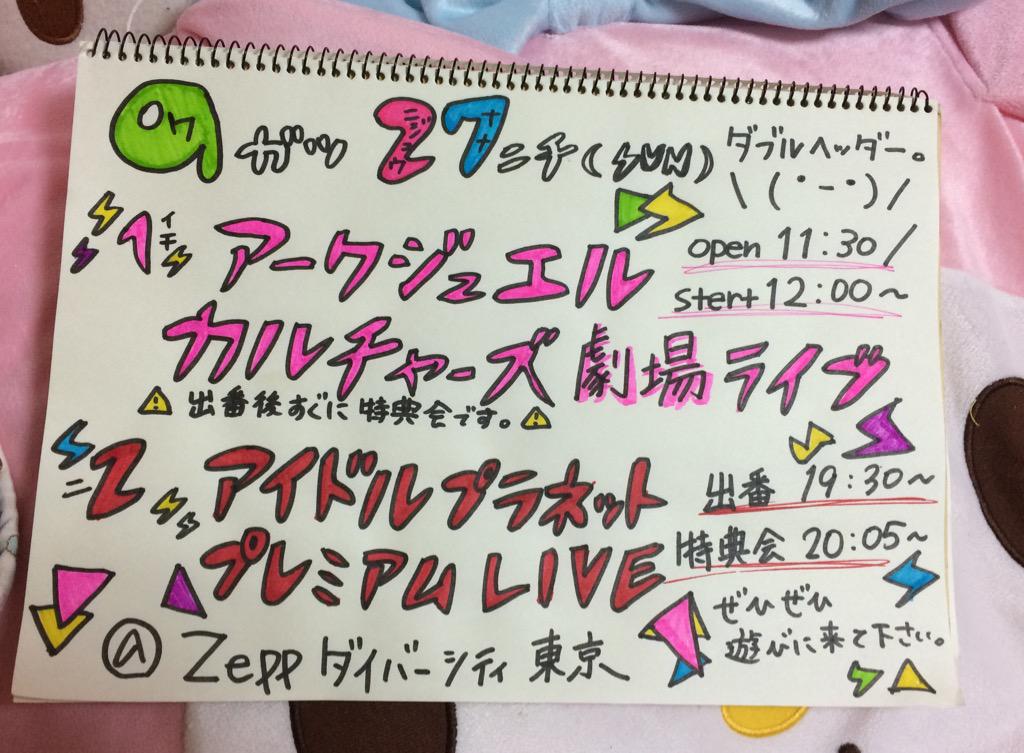 9ガツ27ニチ(SUN)
ダブルヘッダー。
\(・-・)/
1
イチ
アークジュエル
open 11:30/
stert 12:00~
カルチャーズ劇場ライブ
⚠出番後すぐに特典会です。⚠
2
ニ
アイドルプラネット
プレミアムLIVE
出番 19:30~
特典会 20:05~
@Zeppダイバーシティ東京
ぜひぜひ
遊びに来て下さい。